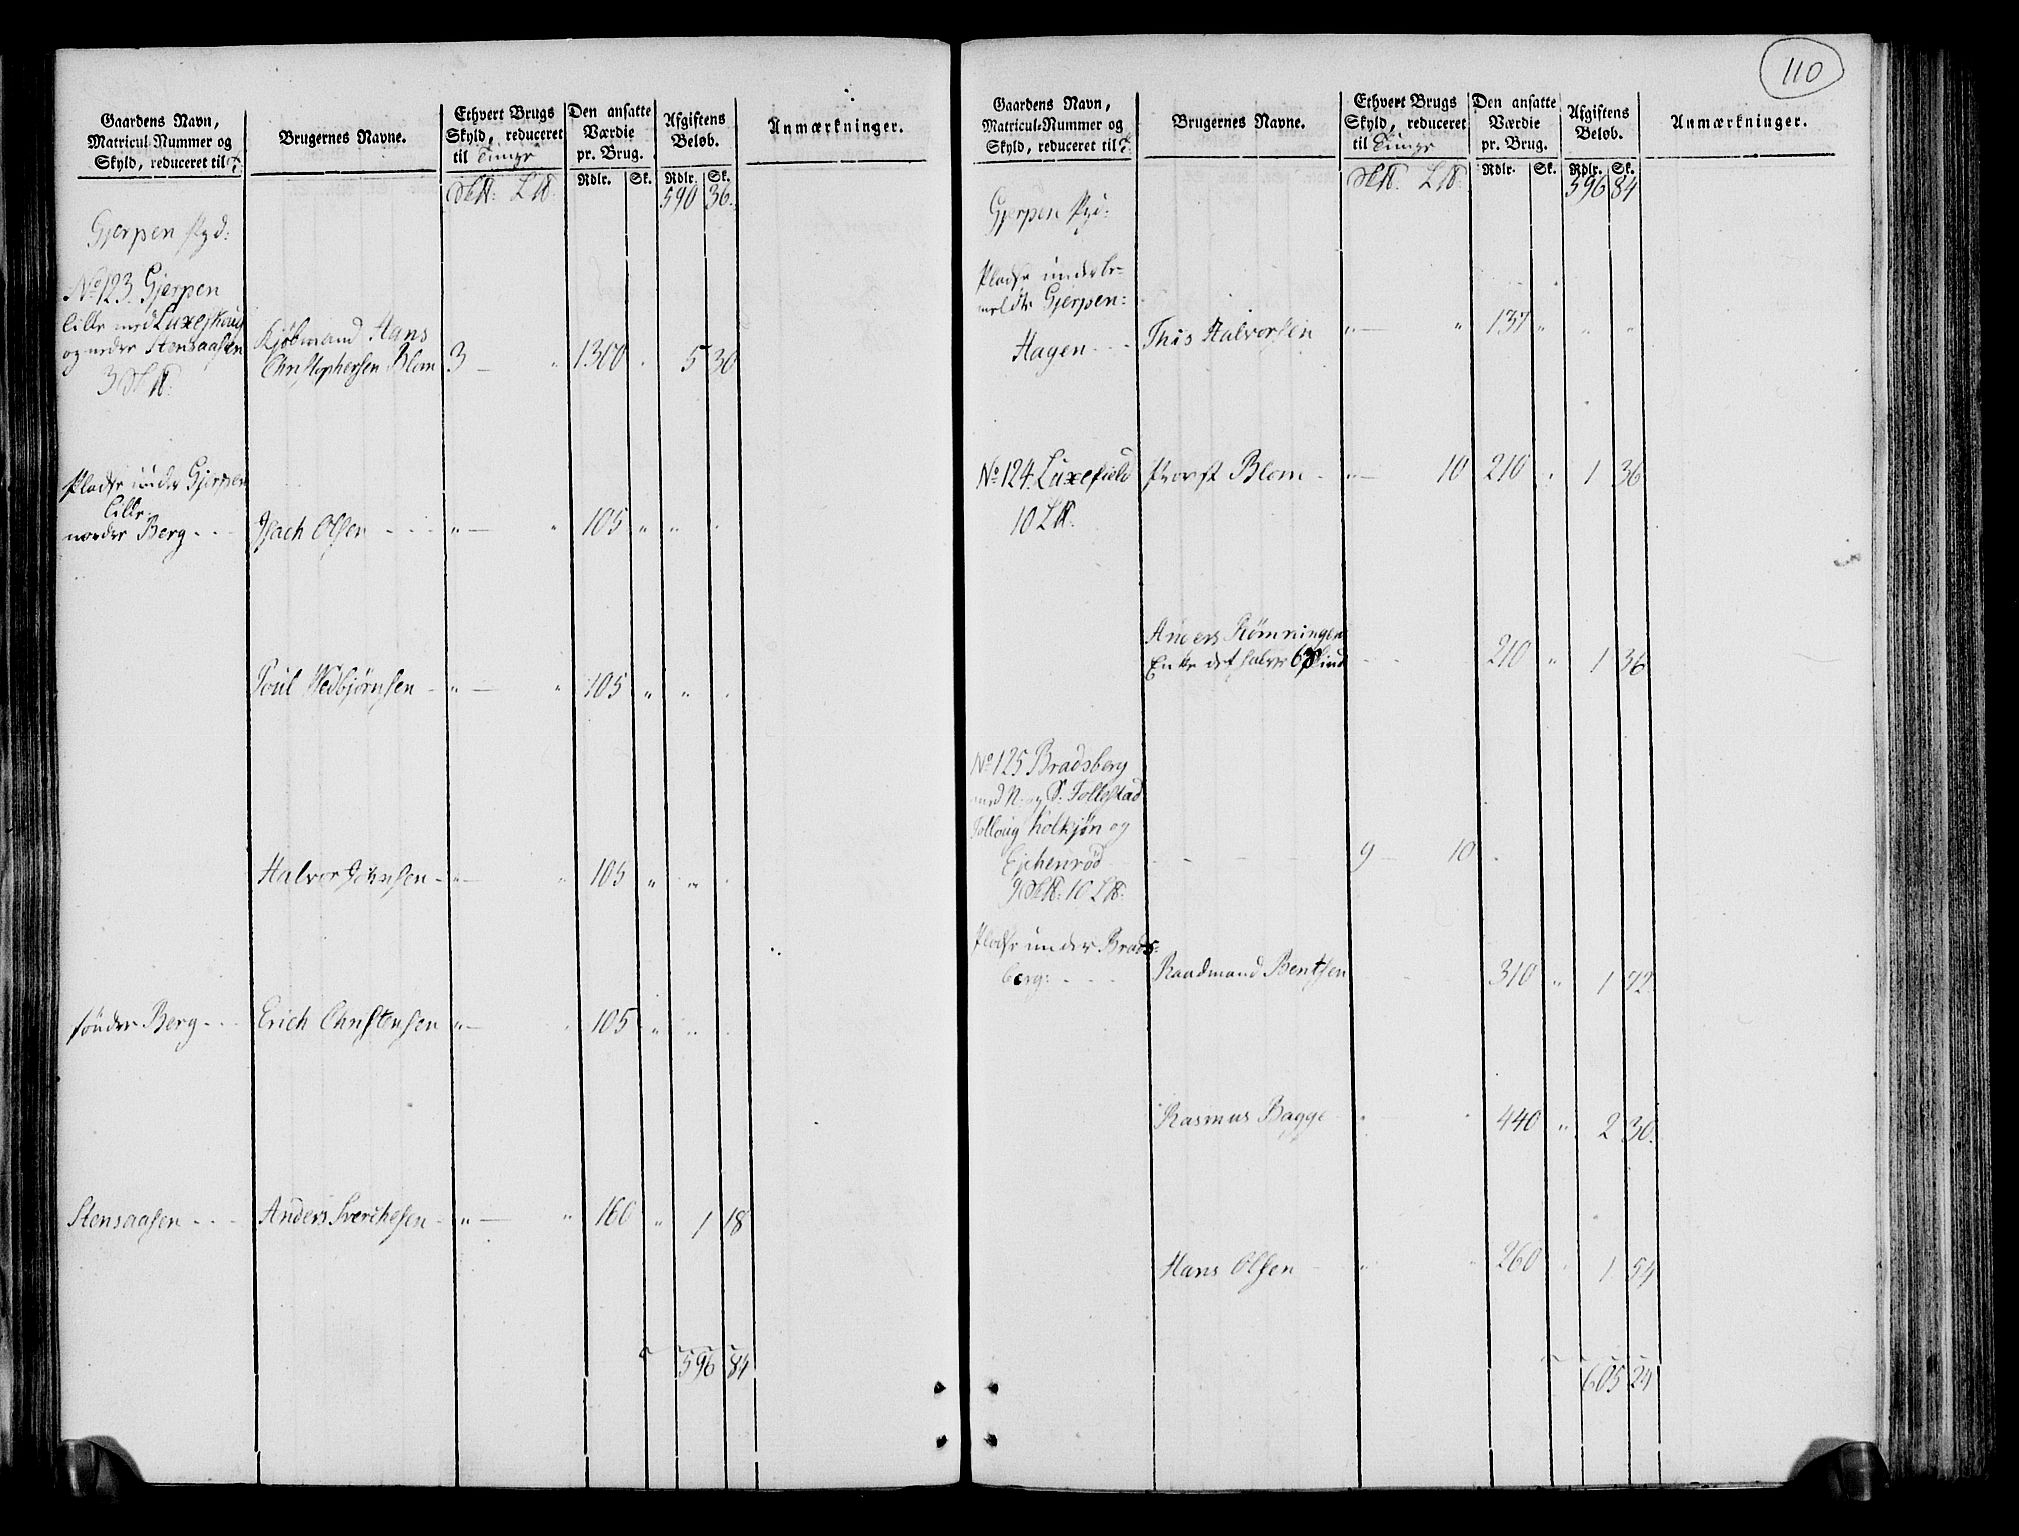 Gaardens Navn, Matricul-Nummer og Skyld, reduceret til T:
Brugernes Navne.
Ethvert Brugs Skyld, reduceret til Tunge
Den ansatte Værdie pr. Brug.
Afgiftens Beløb.
Anmærkninger.
Rdlr. Sk. Rdlr. Sk.
590 36.
Gjerpen
No 123. Gjerpen
lille med Luxefhoug
og neder Stensaasen Kjøbmand Hans
Christophersen Blom 3 — " 1300 . 5 30
Pladse under Gjerpen
lille.
nordre Berg - - - Isach Olsen - - - " — " 105 " "
Poul Wedbjørnsen - " — " 105 " "
Halvor Johnsen - " — " 105 " "
søndre Berg - - - Erich Christensen " — " 105 " "
Stensaasen - - - Anders Sverchesen - " — " 160 " 1 18
596 84
110
Gaardens Navn, Matricul-Nummer og Skyld, reduceret til T:
Brugernes Navne.
Ethvert Brugs Skyld, reduceret til Tunge
Den ansatte Værdie pr. Brug.
Afgiftens Beløb.
Anmærkninger.
Rdlr. Sk. Rdlr. Sk.
596 84
Gjerpen
Pladse under be-
meldte Gjerpen:
Hagen - - - This Halvorsen " — " 137 " " "
No 124. Luxefield Provst Blom - " — 10 210 . 1 36
Anders Rømningen
Enke det halve 210 " 1 36
No 125 Bradsberg
med N. og S. Follestad
Kolkjøn og
9 — 10
Pladse under Brads-
berg: - - - Raadmand Bentsen 310 " 1 72
Rasmus Bagge 440 " 2 30.
Hans Olsen - 260 1 54
605 24